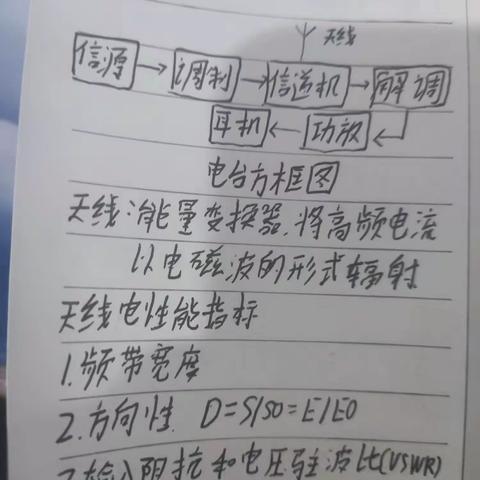 天线
信源→调制→信道机→解调
耳机←功放←
电台方框图
天线:能量变换器,将高频电流
以电磁波的形式辐射
天线电性能指标
1.频带宽度
2.方向性 D=S/S0=E/E0
3.输入阻抗和电压驻波比(VSWR)